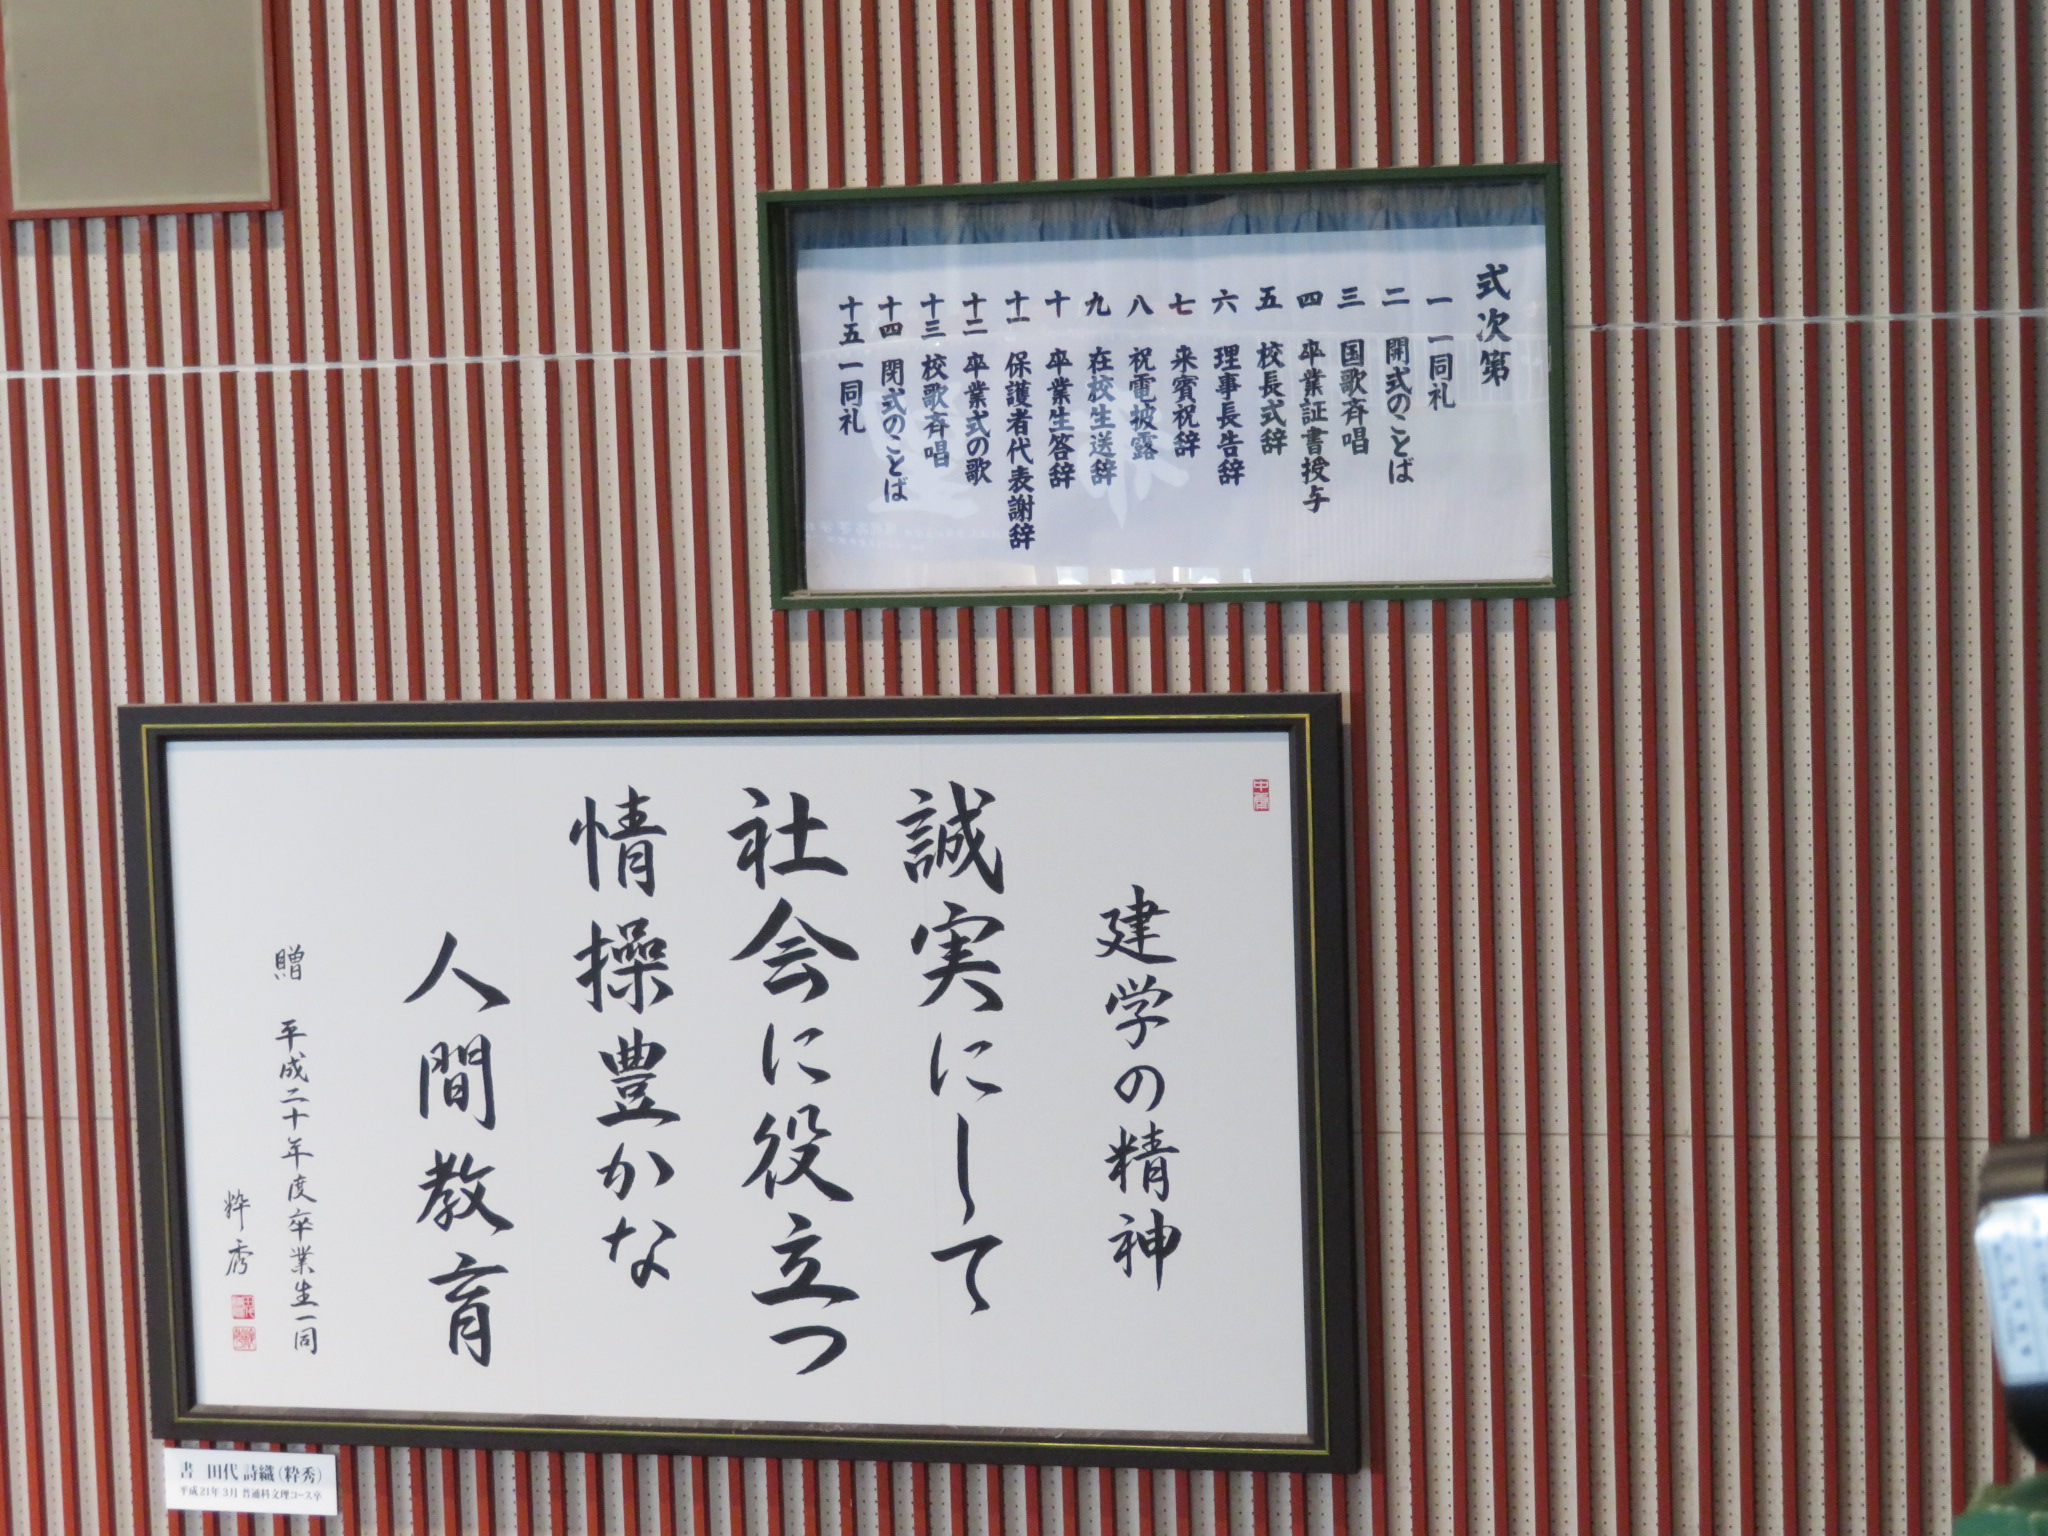 式次第
一 一同礼
二 開式のことば
三 国歌斉唱
四 卒業証書授与
五 校長式辞
六 理事長告辞
七 来賓祝辞
八 祝電披露
九 在校生送辞
十 卒業生答辞
十一 保護者代表謝辞
十二 卒業式の歌
十三 校歌斉唱
十四 閉式のことば
十五 一同礼
建学の精神
誠実にして
社会に役立つ
情操豊かな
人間教育
贈 平成二十年度卒業生一同
粋秀
書 田代 詩織(粋秀)
平成21年3月 普通科文理コース卒